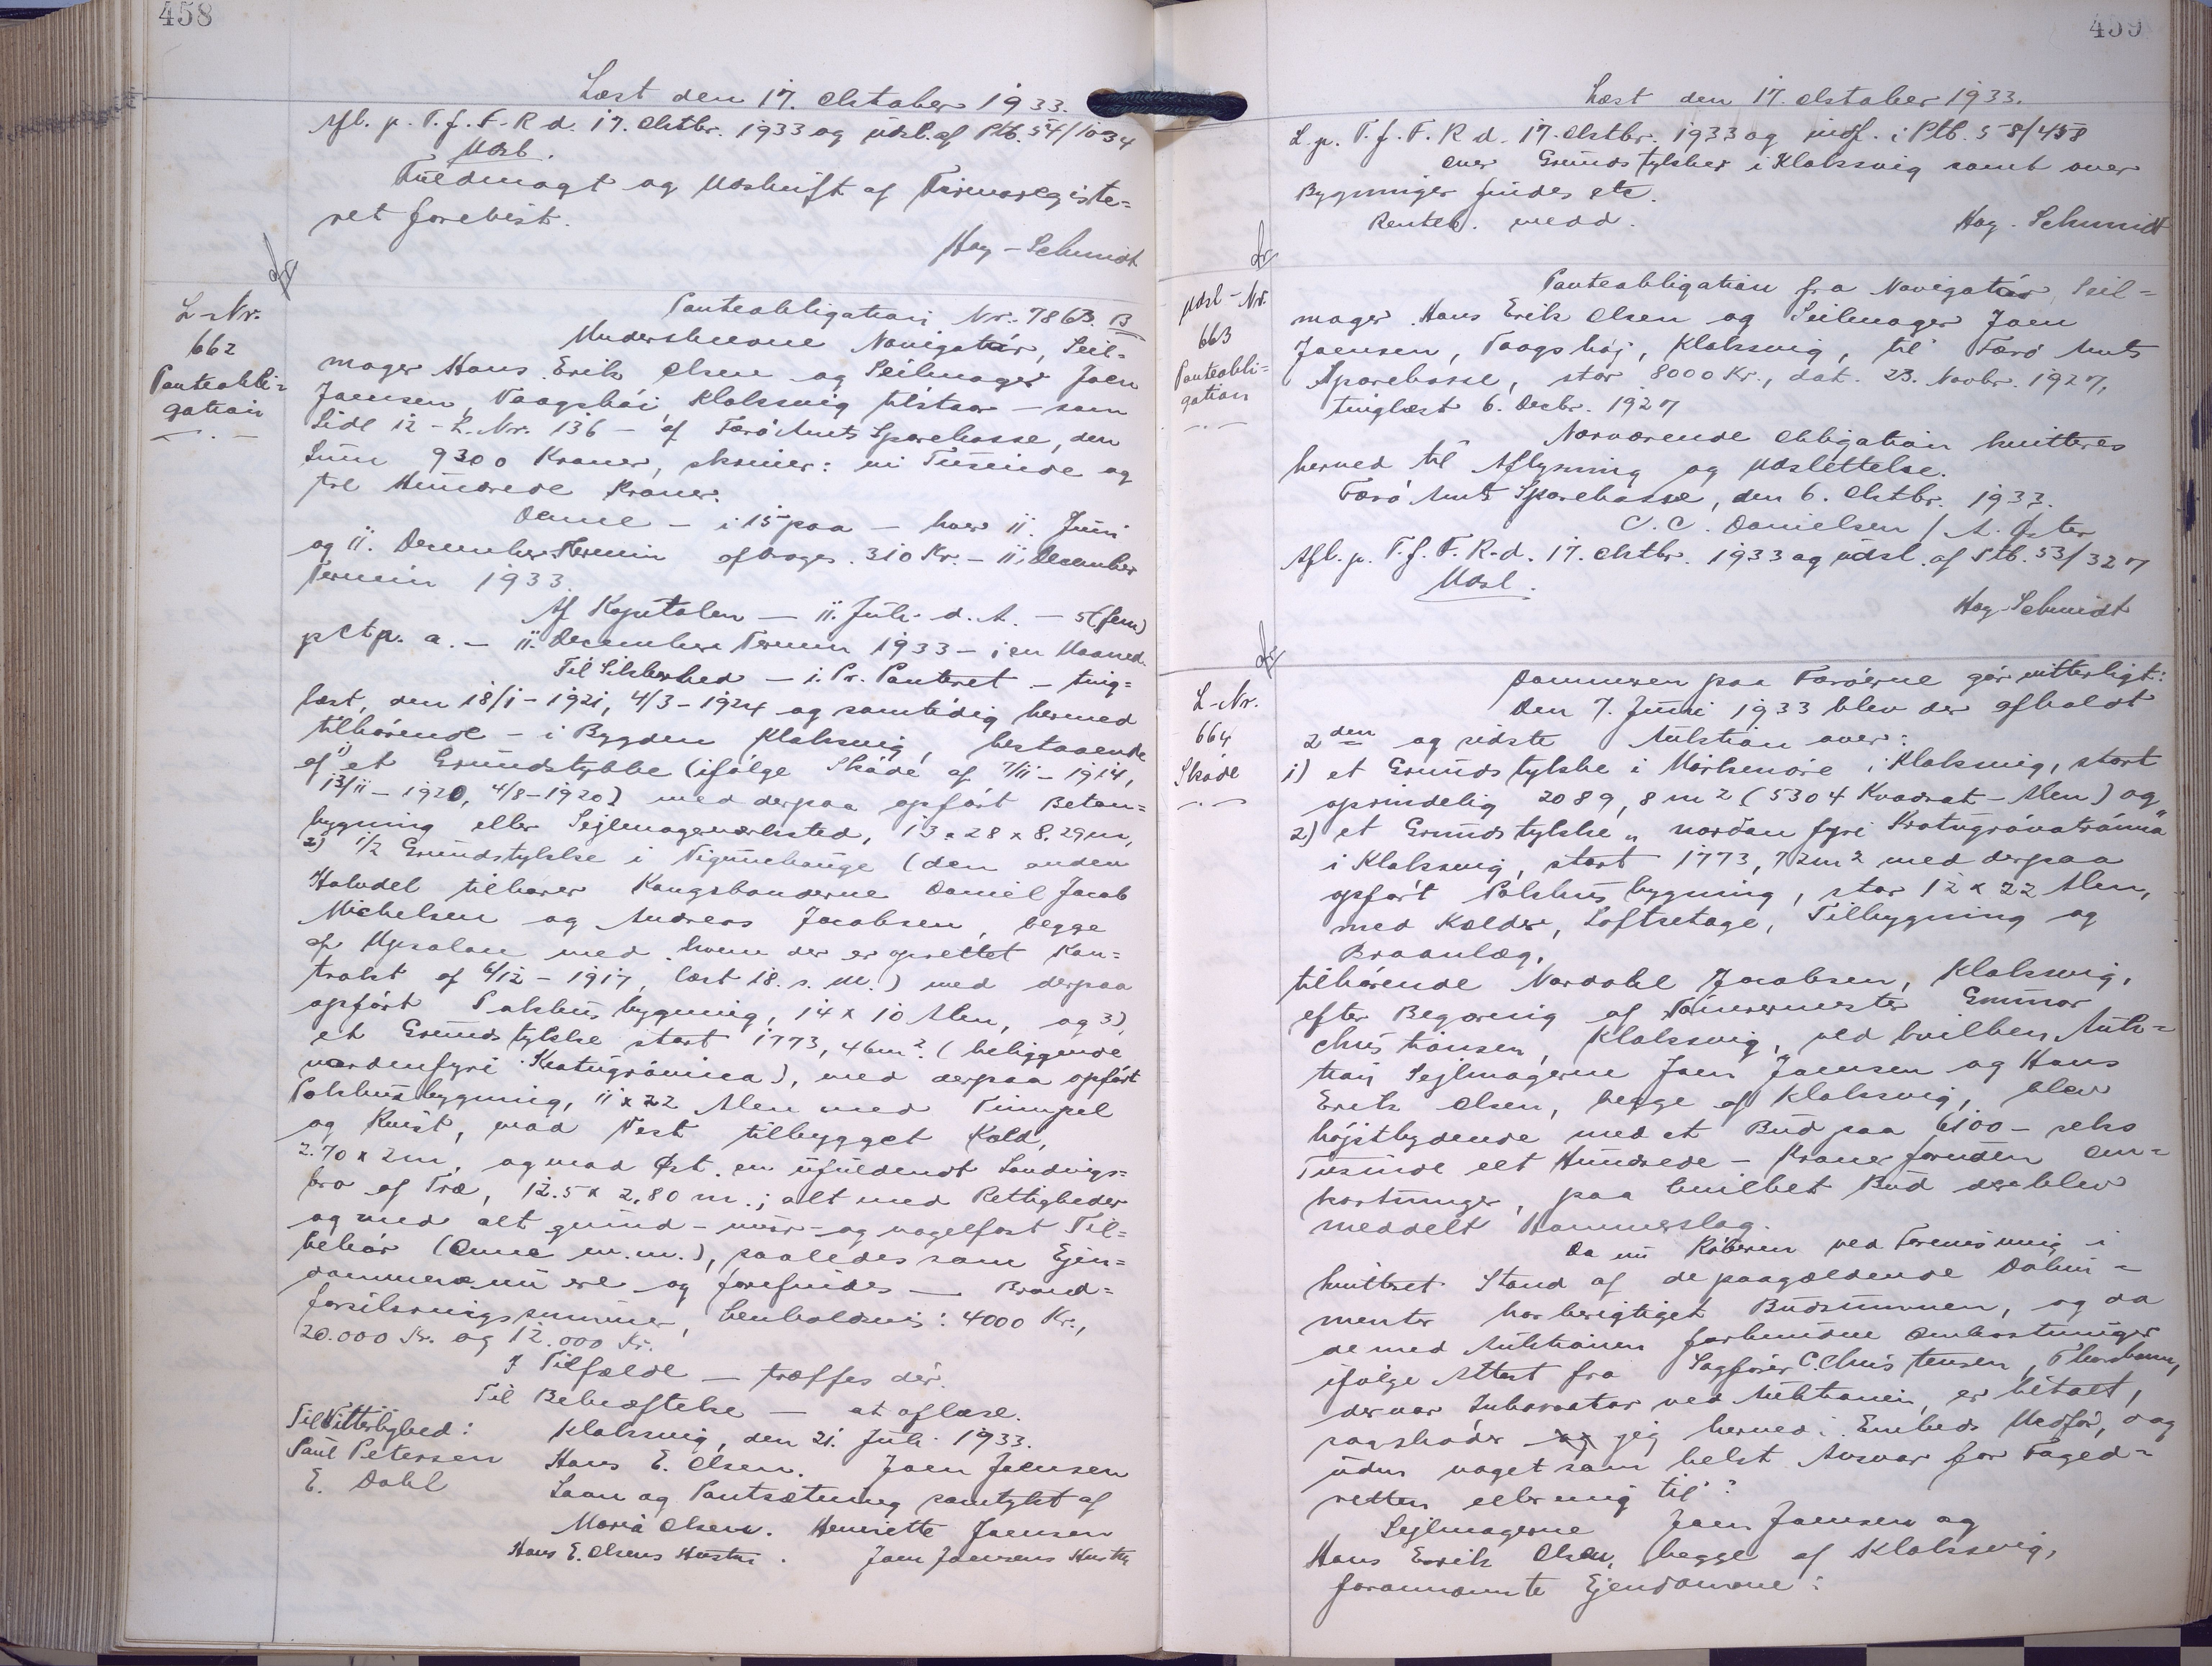 458
Læst den 17. Oktober 1933.
Afl. p. T. f. F. R d. 17. Oktbr. 1933 og udsl. af Ptb. 54/1034
Udsl.
Fuldmagt og Udskrift af Firmaregiste=
ret forevist.
Høg-Schmidt
L-Nr.
662
Panteobli=
gation
Panteobligation Nr. 7863. B
Underskrevne Navigatør, Seil=
mager Hans Erik Olsen og Seilmager Joen
Joensen, Vaagshøi, Klaksvig tilstaar – som
Side 12 – L. Nr. 136 – af Færø Amts Sparekasse, den
Sum 9300 Kroner, skriver: ni Tusinde og
tre Hundrede Kroner.
Denne – i 15 paa – hver 11. Juni
og 11. December Termin afdrages 310 Kr. – 11. December
Termin 1933.
Af Kapitalen – 11. Juli d. A. – 5 (fem)
pCt p. a. – 11. December Termin 1933 – i en Maaned.
Til Sikkerhed – i Pr. Panteret – ting=
læst, den 18/1 – 1921, 4/3 – 1924 og samtidig hermed
tilhørende – i Bygden Klaksvig, bestaaende
af 1) et Grundstykke (ifølge Skøde af 7/11 – 1914,
13/11 – 1920, 4/8 – 1920) med derpaa opført Beton=
bygning eller Sejlmagerværksted, 13 x 28 x 8,29 m,
2) 1/2 Grundstykke i Vigunehauge (den anden
Halvdel tilhører Kongsbønderne Daniel Jacob
Michelsen og Andreas Jacobsen, begge
af Upsalan med hvem der er oprettet Kon=
trakt af 6/12 – 1917, læst 18. s. M.) med derpaa
opført Pakhusbygning, 14 x 10 Alen, og 3),
et Grundstykke stort 1773,46 m². (beliggende
nordenfyri Kratugrónina), med derpaa opført
Pakhusbygning, 11 x 22 Alen med Timpel
og Kvist, mod Vest tilbygget Kold,
2.70 x 2m, og mod Øst en ufuldendt Landings=
bro af Træ, 12.5 x 2.80 m.; alt med Rettigheder
og med alt grund- mur- og nagelfast Til=
behør (Ovne m.m.), saaledes som Ejen=
dommene nu ere og forefindes – Brand=
forsikringssummer, henholdsvis: 4000 Kr.,
20.000 Kr. og 12.000 Kr.
I Tilfælde – træffes dér.
Til Bekræftelse – at aflæse.
Til Vitterlighed: Klaksvig, den 21. Juli 1933.
Paul Petersen Hans E. Olsen. Joen Joensen
E. Dahl Laan og Pantsætning samtykt af
Maria Olsen. Henriette Joensen
Hans E. Olsens Hustru. Joen Joensens Hustru
459
Læst den 17. Oktober 1933.
L. p. T. f. F. R d. 17. Oktbr. 1933 og indf. i Ptb. 58/458
over Grundstykker i Klaksvig samt over
Bygninger findes etc.
Renteb. medd. Høg-Schmidt
Udsl-Nr.
663
Panteobli=
gation
Panteobligation fra Navigatør, Seil=
mager Hans Erik Olsen og Seilmager Joen
Joensen, Vaagshøj, Klaksvig, til Færø Amts
Sparekasse, stor 8000 Kr., dat. 23. Novbr. 1927,
tinglæst 6. Decbr. 1927
Nærværende Obligation kvitteres
herved til Aflysning og Udslettelse.
Færø Amts Sparekasse, den 6. Oktbr. 1933.
C. C. Danielsen / A. Øster
Afl. p. T. f. F. R. d. 17. Oktbr. 1933 og udsl. af Ptb. 53/327
Udsl.
Høg-Schmidt
L-Nr.
664
Skøde
Dommeren paa Færøerne gør vitterligt:
Den 7. Juni 1933 blev der afholdt
2den og sidste Auktion over:
1) et Grundstykke i Mørkenøre i Klaksvig, stort
oprindelig 2089,8 m2 (5304 Kvadrat-Alen) og
2) et Grundstykke „nordan fyri Kratugrónatránna"
i Klaksvig, stort 1773,72 m² med derpaa
opført Pakhusbygning, stor 12 x 22 Alen,
med Kælder, Loftsetage, Tilbygning og
Broanlæg,
tilhørende Nordahl Jacobsen, Klaksvig,
efter Begæring af Tømrermester Gunnar
Christiansen, Klaksvig, ved hvilken Auk=
tion Sejlmagerne Joen Joensen og Hans
Erik Olsen, begge af Klaksvig, blev
højstbydende med et Bud paa 6100 – seks
Tusinde eet Hundrede – Kroner foruden Om=
kostninger, paa hvilket Bud der blev
meddelt Hammerslag.
Da nu Køberen ved Forevisning i
kvitteret Stand af de paagældende Doku=
menter har berigtiget Budsummen, og da
de med Auktionen forbundne Omkostninger
ifølge Attest fra Sagfører C. Christensen, Thorshavn,
der var Inkassator ved Auktionen, er betalt,
saa skøder og jeg herved i Embeds Medfør, og
uden noget som helst Ansvar for Foged=
retten eller mig til:
Sejlmagerne Joen Joensen og
Hans Erik Olsen, begge af Klaksvig,
forannævnte Ejendomme: